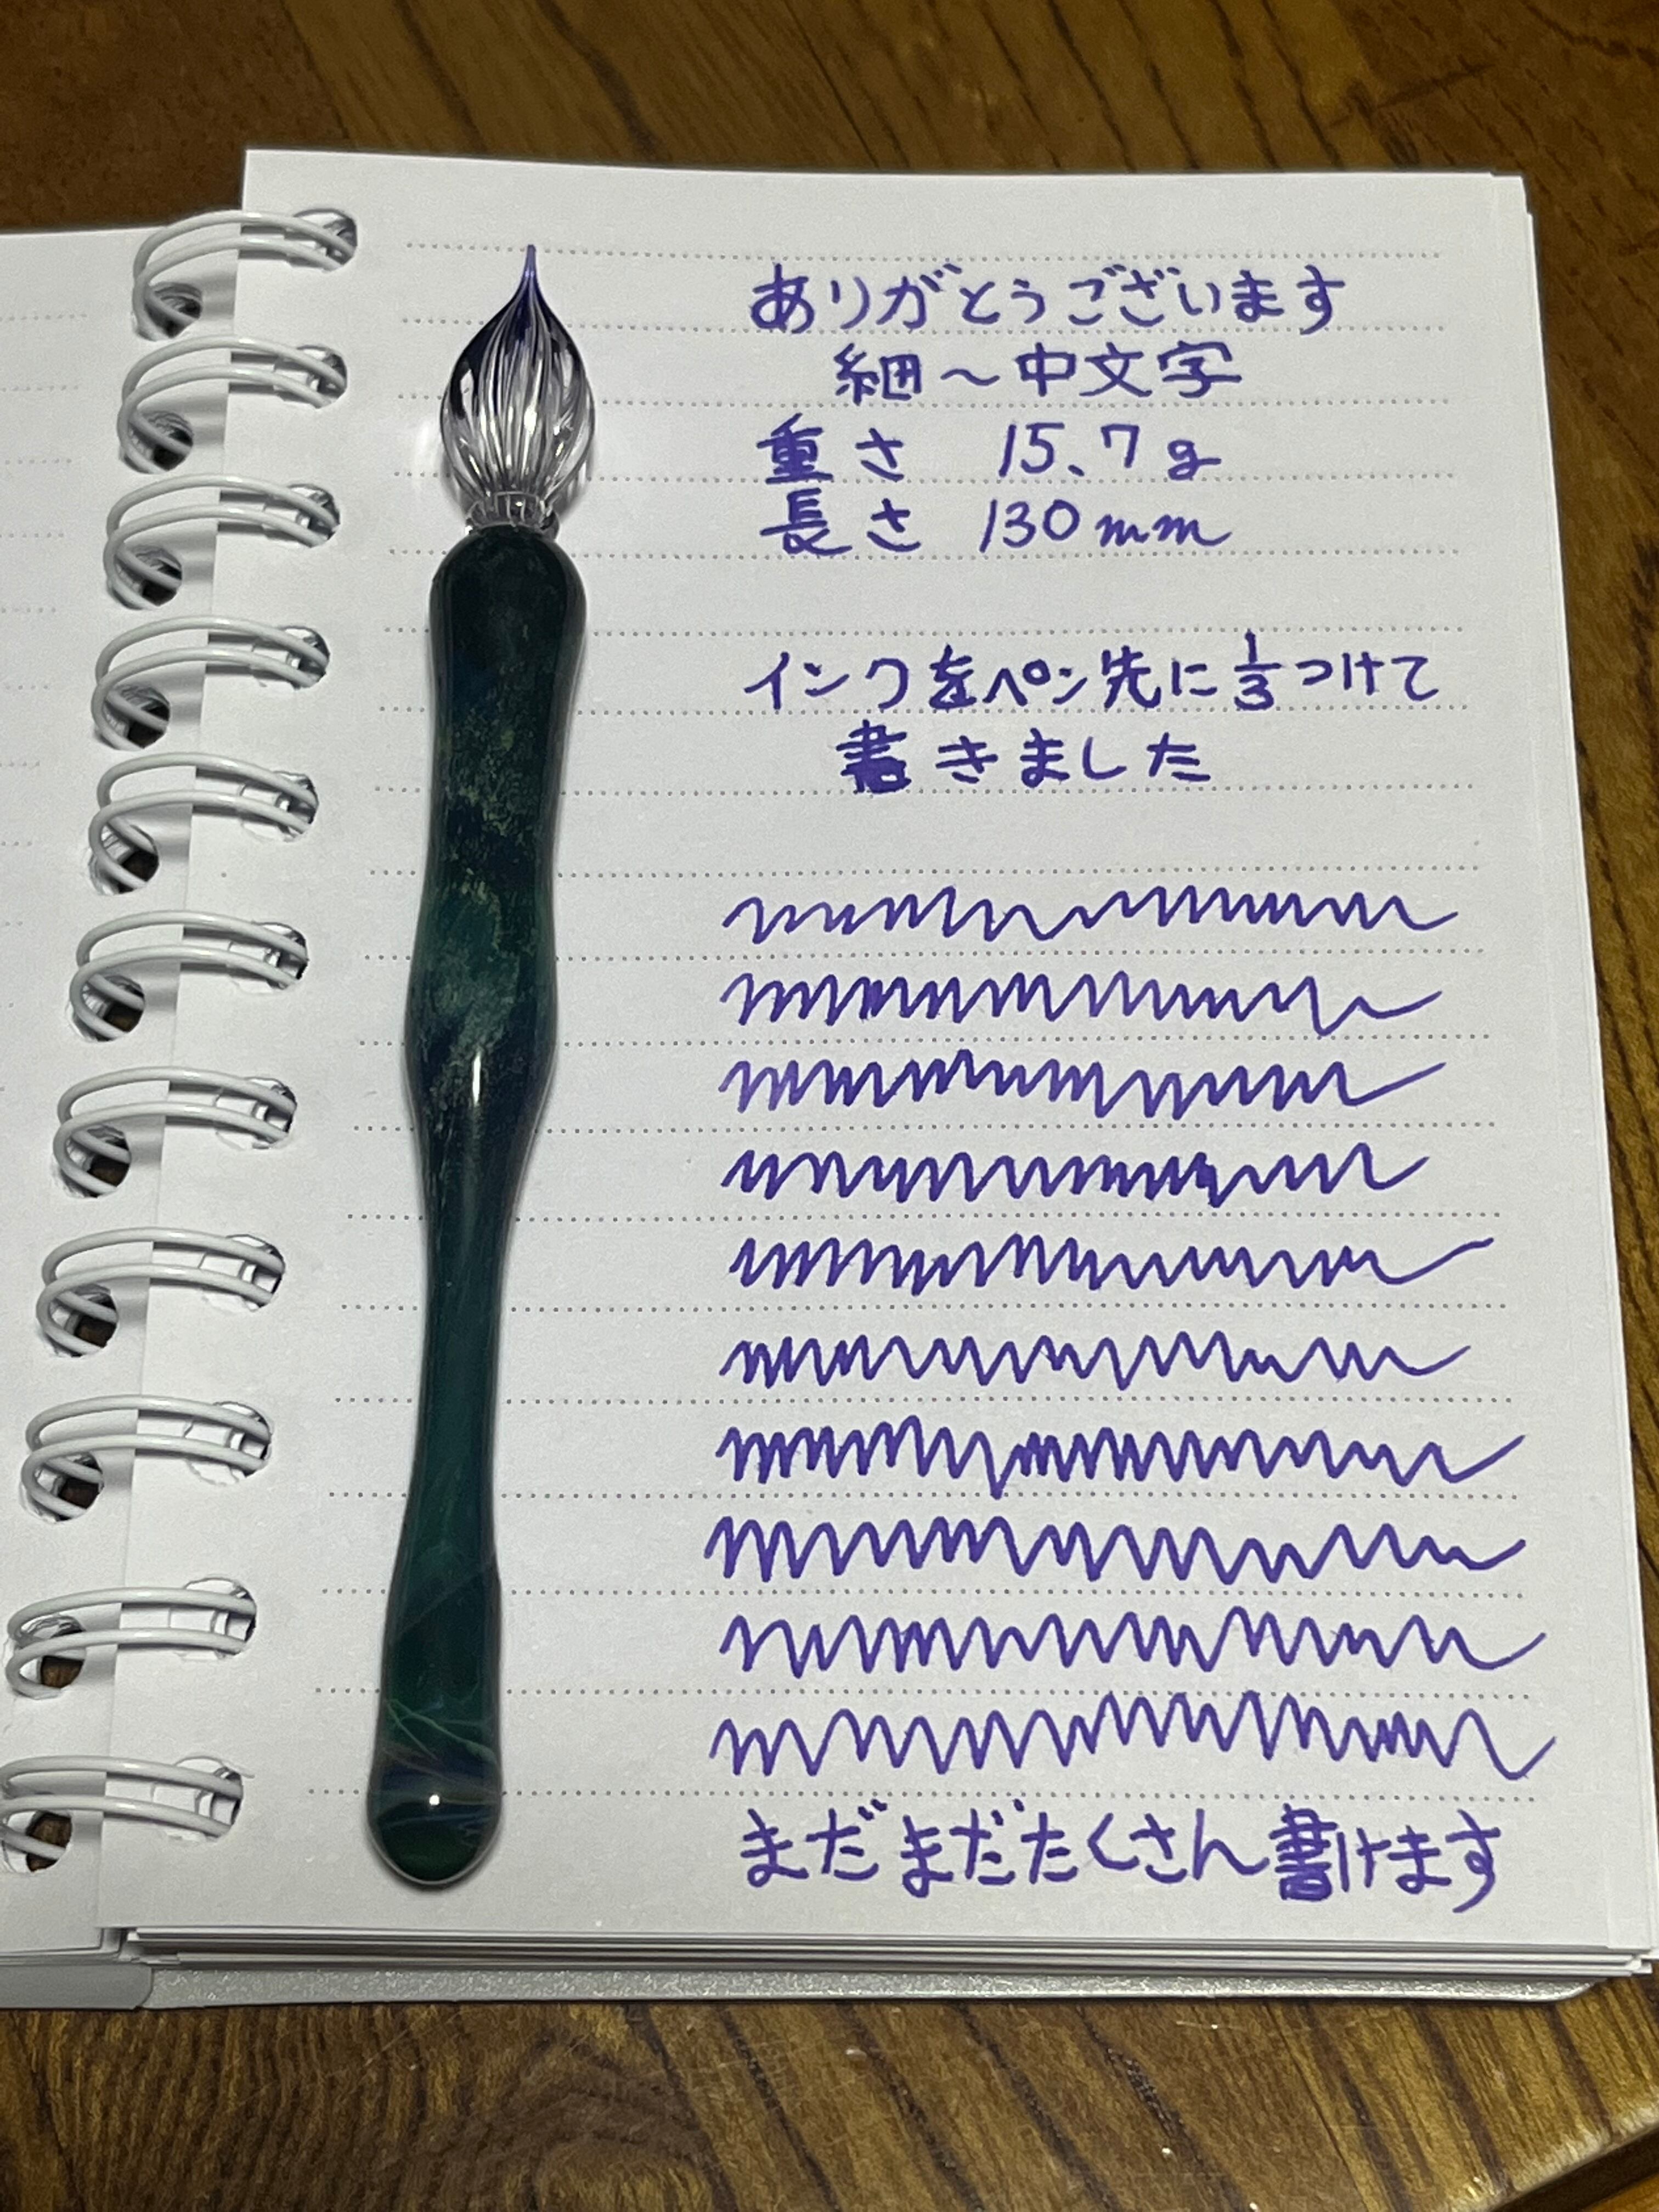 ありがとうございます
細～中文字
重さ 15.7g
長さ 130mm
インクをペン先に1/3つけて
書きました
まだまだたくさん書けます